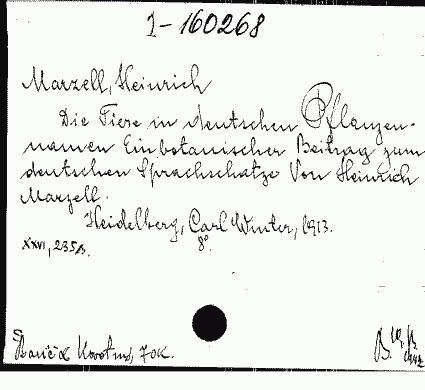 1-160268
Marzell, Heinrich
Die Tiere in deutschen Pflanzen-
namen Ein botanischer Beitrag zum
deutschen Sprachschatze Von Heinrich
Marzell.
Heidelberg, Carl Winter, 1913.
XXVI, 235 S. 8°.
70K.
B.